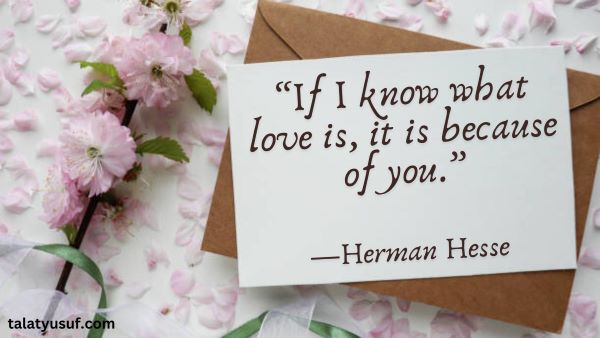 “If I know what
love is, it is because
of you.”
—Herman Hesse
talatyusuf.com